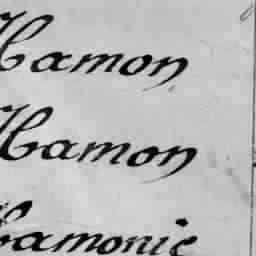 Hamon
Hamon
Hamonic